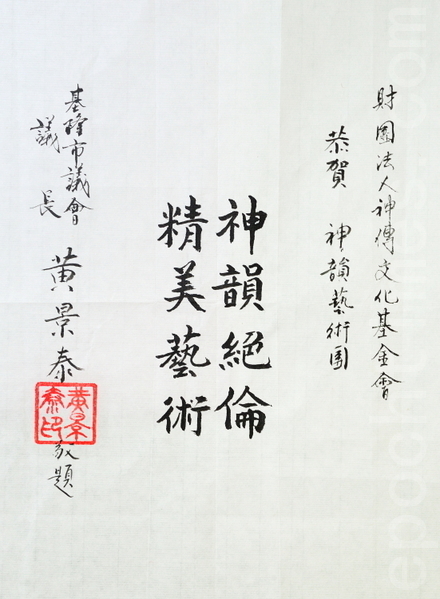 財團法人神傳文化基金會
恭賀 神韻藝術團
神韻絕倫
精美藝術
基隆市議會
議長 黃景泰 敬題
黃景泰印